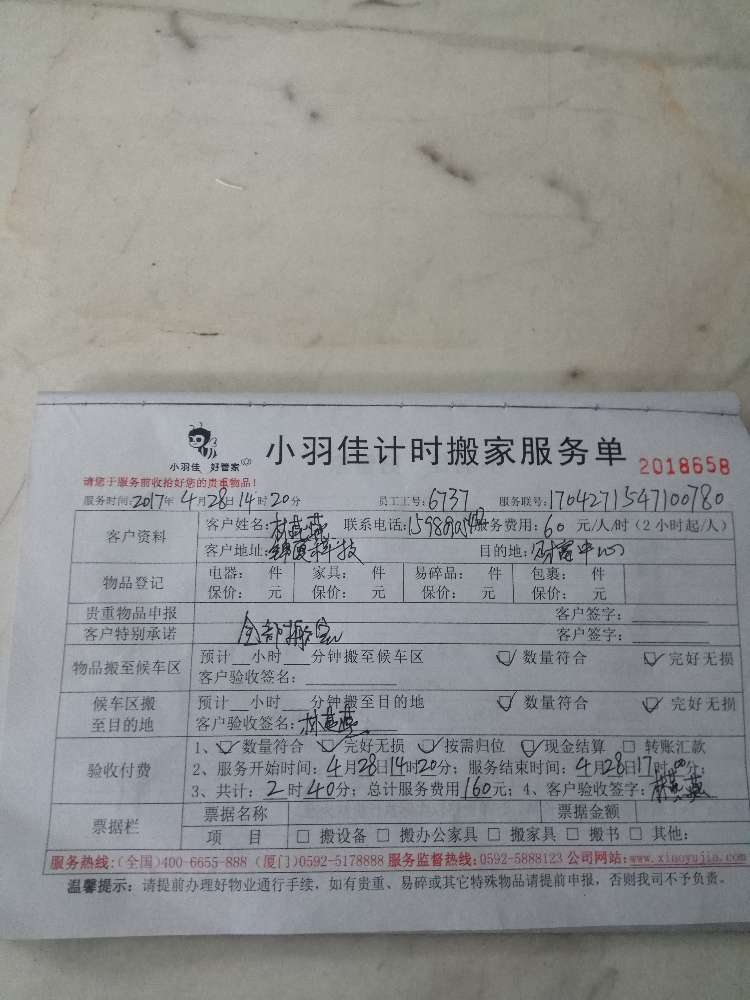 小羽佳 好管家
小羽佳计时搬家服务单
2018658
请您于服务前收拾好您的贵重物品!
服务时间:2017年4月28日14时20分 员工工号:6737 服务联号:1704271547100780
客户资料
客户姓名:林燕燕 联系电话: 服务费用:60元/人/时(2小时起/人)
客户地址:锦厦科技 目的地:财富中心
物品登记
电器: 件 家具: 件 易碎品: 件 包裹: 件
保价: 元 保价: 元 保价: 元 保价: 元
贵重物品申报 客户签字:
客户特别承诺 全部搬完 客户签字:
物品搬至候车区
预计__小时__分钟搬至候车区 ☑ 数量符合 ☑ 完好无损
客户验收签名:
候车区搬至目的地
预计__小时__分钟搬至目的地 ☑ 数量符合 ☑ 完好无损
客户验收签名:林燕燕
验收付费
1、☑ 数量符合 ☑ 完好无损 ☑ 按需归位 ☑ 现金结算 □ 转账汇款
2、服务开始时间:4月28日14时20分; 服务结束时间:4月28日17时00分;
3、共计:2时40分; 总计服务费用160元; 4、客户验收签字:林燕燕
票据栏
票据名称 票据金额
项 目 □ 搬设备 □ 搬办公家具 □ 搬家具 □ 搬书 □ 其他:
服务热线:(全国)400-6655-888 (厦门)0592-5178888 服务监督热线:0592-5888123 公司网站:www.xiaoyujia.com
温馨提示: 请提前办理好物业通行手续,如有贵重、易碎或其它特殊物品请提前申报,否则我司不予负责。